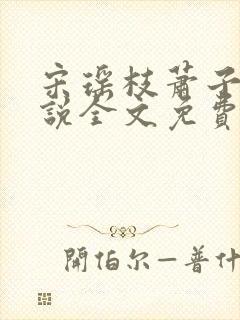 宋瑶枝萧子
說全文免費
開伯尔—普什